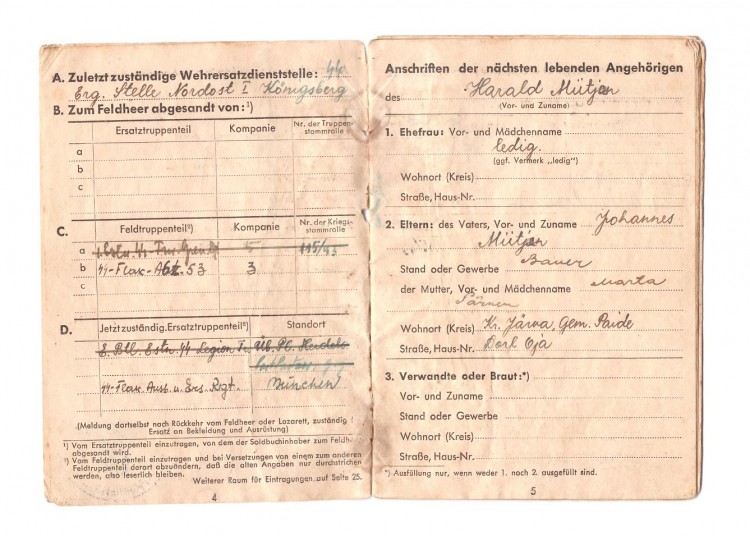 A. Zuletzt zuständige Wehrersatzdienststelle:
Erg. Stelle Nordost I Königsberg
B. Zum Feldheer abgesandt von:¹)
Ersatztruppenteil Kompanie Nr. der Truppen-
stammrolle
a
b
c
C. Feldtruppenteil²) Kompanie Nr. der Kriegs-
stammrolle
a 5 115/43
b Flak-Abt. 53 3
c
D. Jetzt zuständig. Ersatztruppenteil²) Standort
E. Btl. Estn. Legion Üb. Pl. Heidela
Flak Ausb. u. Ers. Rgt. München
(Meldung dortselbst nach Rückkehr vom Feldheer oder Lazarett, zuständig f
Ersatz an Bekleidung und Ausrüstung)
¹) Vom Ersatztruppenteil einzutragen, von dem der Soldbuchinhaber zum Feldh
abgesandt wird.
²) Vom Feldtruppenteil einzutragen und bei Versetzungen von einem zum anderen
Feldtruppenteil derart abzuändern, daß die alten Angaben nur durchstrichen
werden, also leserlich bleiben.
Weiterer Raum für Eintragungen auf Seite 25.
4
Anschriften der nächsten lebenden Angehörigen
des Harald Mütjan
(Vor- und Zuname)
1. Ehefrau: Vor- und Mädchenname
ledig.
(ggf. Vermerk „ledig")
Wohnort (Kreis)
Straße, Haus-Nr.
2. Eltern: des Vaters, Vor- und Zuname Johannes
Mütjan
Stand oder Gewerbe Bauer
der Mutter, Vor- und Mädchenname Marta
Wohnort (Kreis) Kr. Järva, Gem. Paide
Straße, Haus-Nr. Dorf Oja
3. Verwandte oder Braut:*)
Vor- und Zuname
Stand oder Gewerbe
Wohnort (Kreis)
Straße, Haus-Nr.
*) Ausfüllung nur, wenn weder 1. noch 2. ausgefüllt sind.
5